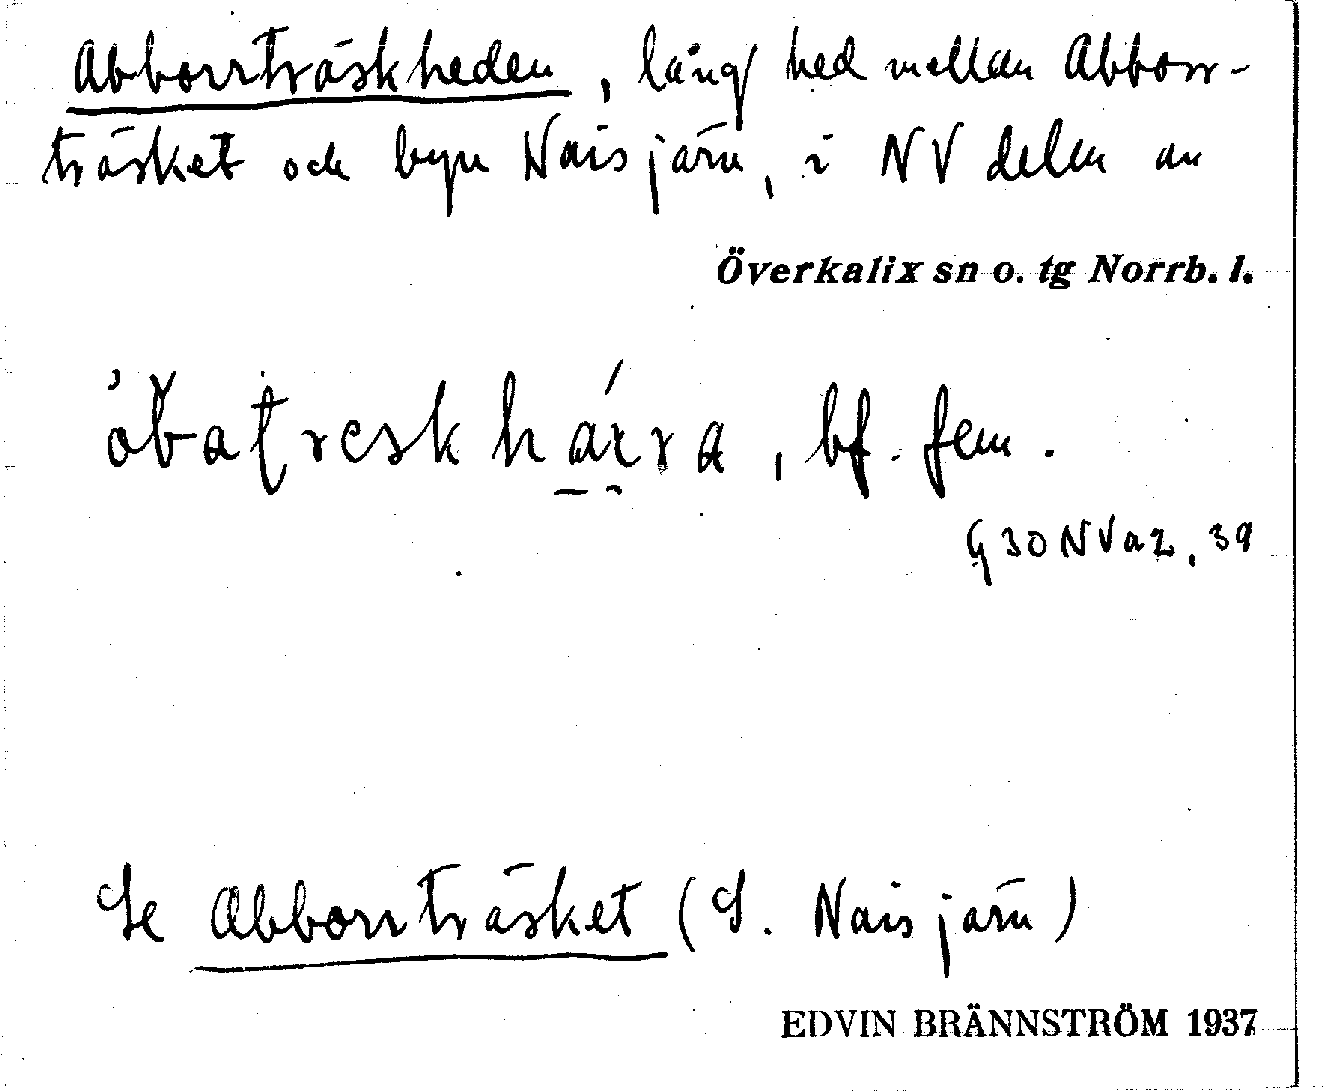 Abborrträskheden, lång hed mellan Abborr-
träsket och byn Naisjärv, i NV delen av
Överkalix sn o. tg Norrb. l.
bf. fem.
G 30 NV a 2, 39
Se Abborrträsket (S. Naisjärv)
EDVIN BRÄNNSTRÖM 1937